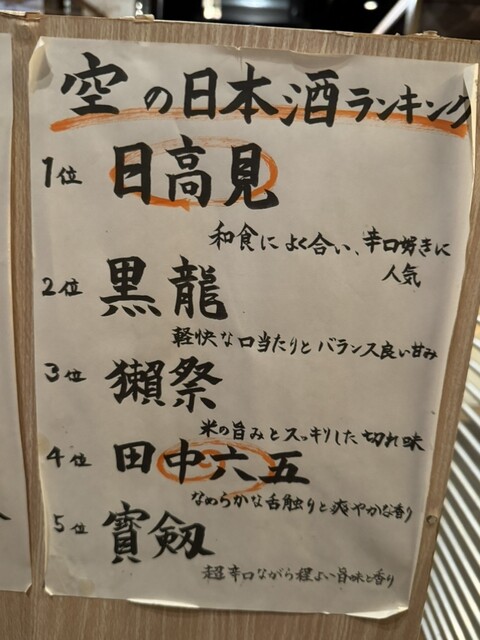 空の日本酒ランキング
1位 日高見
和食によく合い、辛口好きに
人気
2位 黒龍
軽快な口当たりとバランス良い甘み
3位 獺祭
米の旨みとスッキリした切れ味
4位 田中六五
なめらかな舌触りと爽やかな香り
5位 寶剱
超辛口ながら程よい旨味と香り